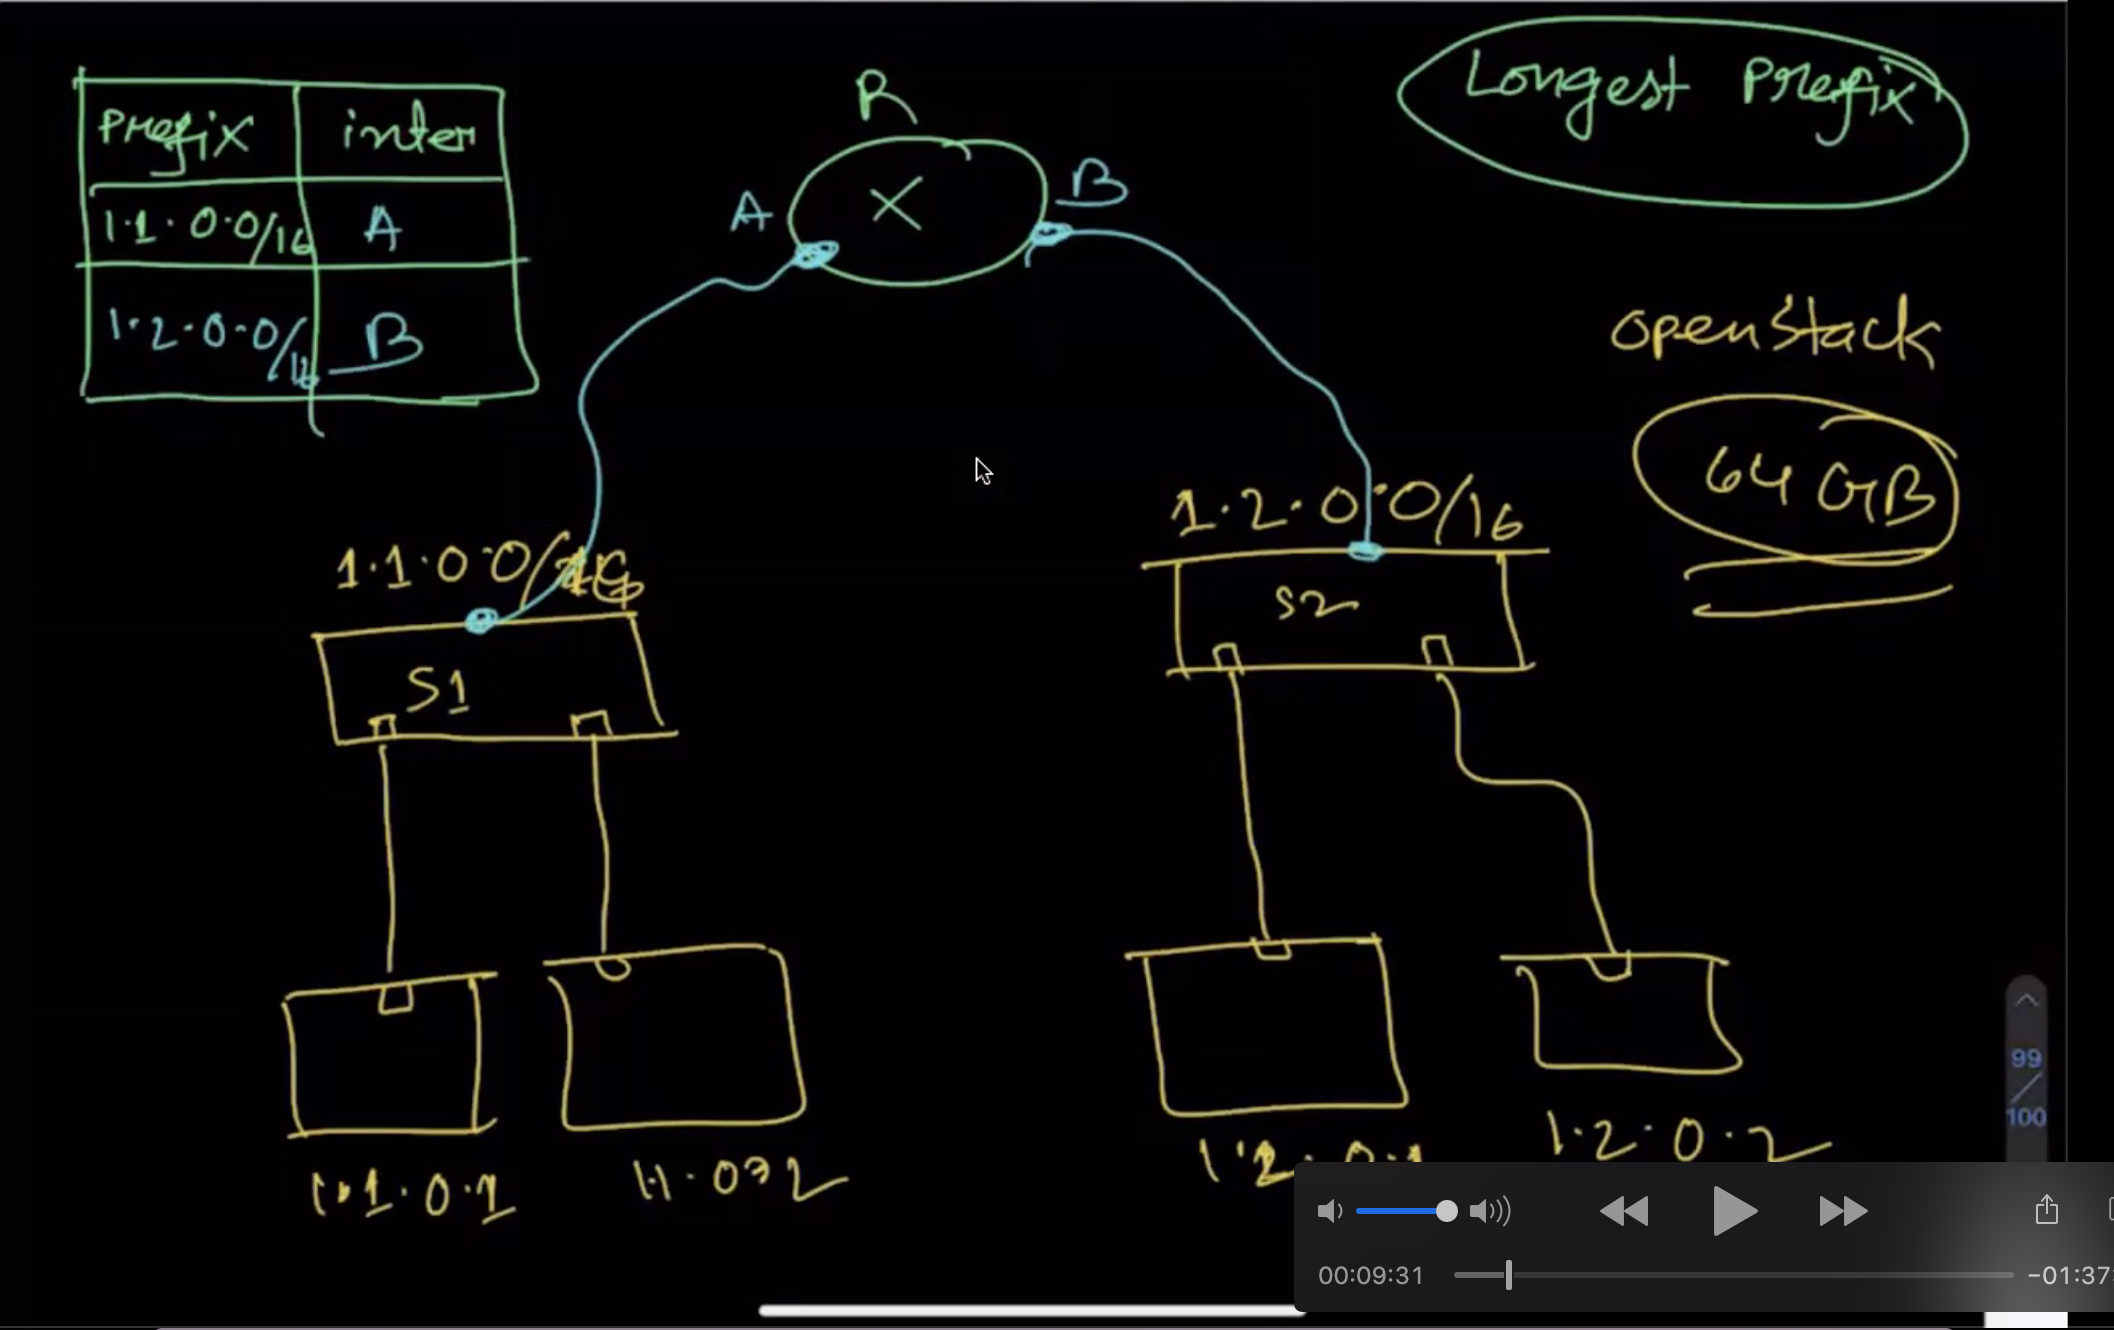 Prefix inter
1.1.0.0/16 A
1.2.0.0/16 B
R
A X B
Longest Prefix
openstack
64 GB
1.1.0.0/16
S1
1.2.0.0/16
S2
1.1.0.1
1.1.0.2
1.2.0.1
1.2.0.2
99
100
00:09:31
-01:37: